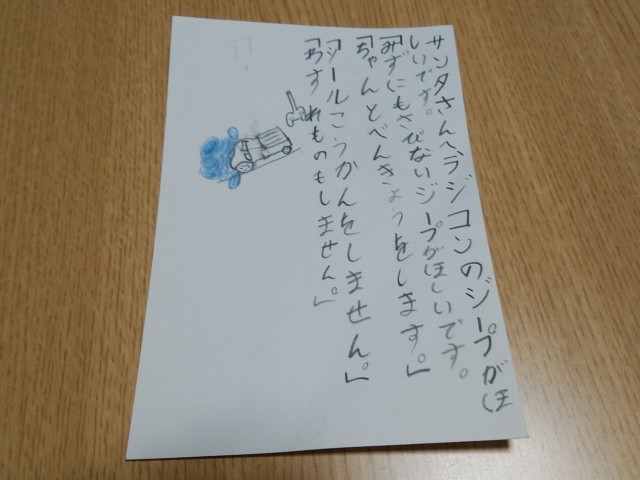 サンタさんへラジコンのジープがほ
しいです。
「みずにもさびないジープがほしいです。
「ちゃんとべんきょうをします。」
「シールこうかんをしません。」
「わすれものもしません。」